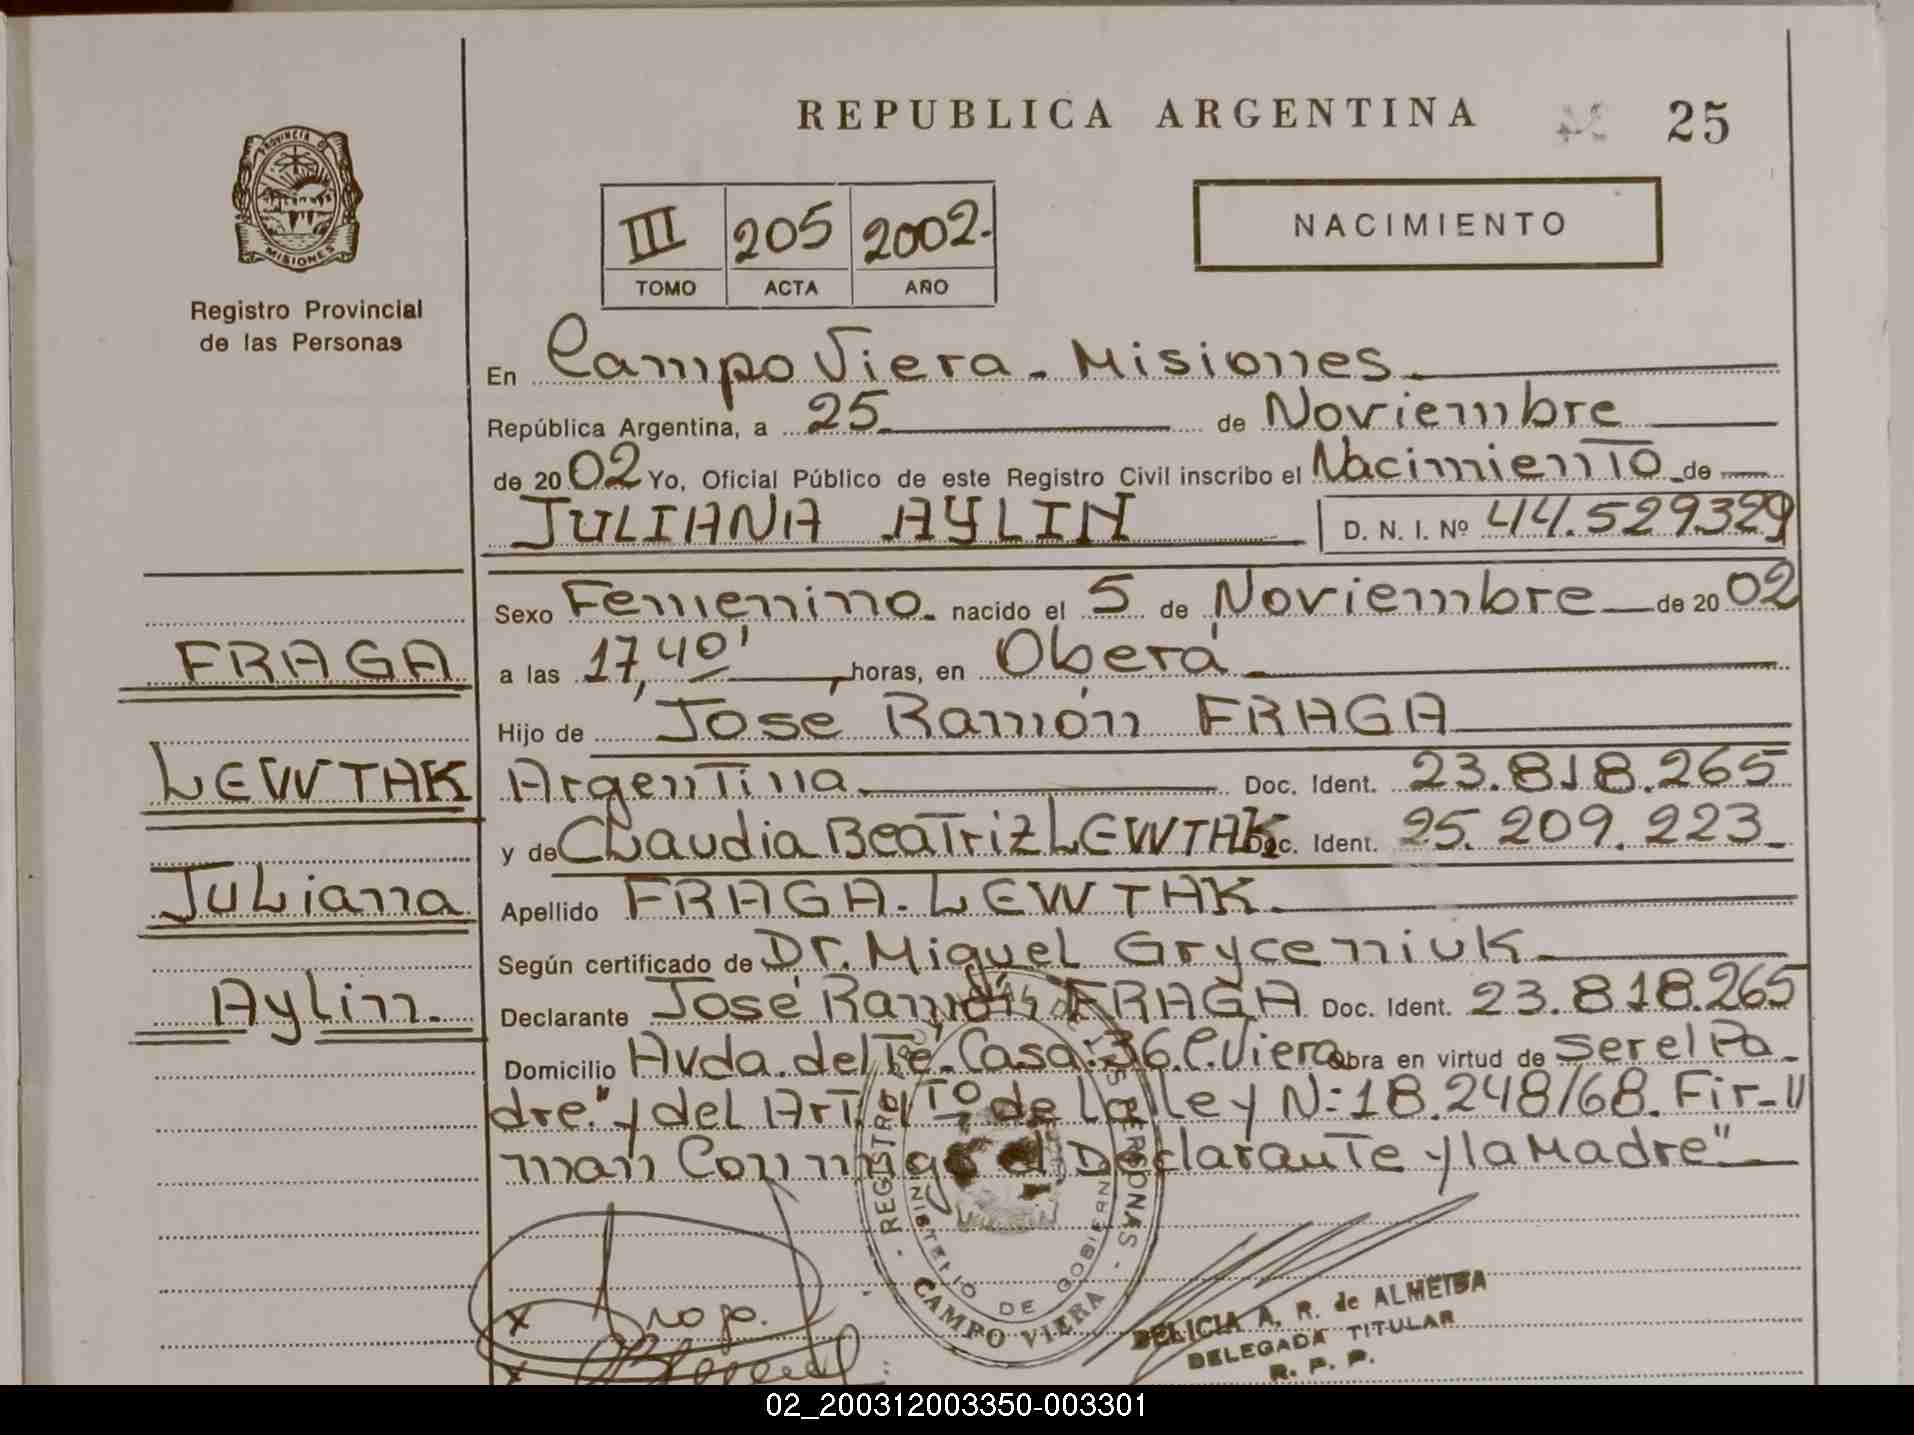 REPUBLICA ARGENTINA
25
PROVINCIA DE
MISIONES
Registro Provincial
de las Personas
III 205 2002.-
TOMO ACTA AÑO
NACIMIENTO
En Campo Viera - Misiones
República Argentina, a 25 de Noviembre
de 2002 Yo, Oficial Público de este Registro Civil inscribo el Nacimiento de
JULIANA AYLIN D. N. I. Nº 44.529329
Sexo Femenino nacido el 5 de Noviembre de 2002
a las 17,40' horas, en Oberá
Hijo de José Ramón FRAGA
Argentina Doc. Ident. 23.818.265
y de Claudia Beatriz LEWTAK Doc. Ident. 25.209.223
Apellido FRAGA. LEWTAK
Según certificado de Dr. Miguel Gryceniuk
Declarante José Ramón FRAGA Doc. Ident. 23.818.265
Domicilio Avda. del Té. Casa: 36. C. Viera Obra en virtud de Ser el Pa-
dre." y del Art. 4to de la ley N: 18.248/68. Fir-"
man Conmigo el Declarante y la Madre"
FRAGA
LEWTAK
Juliana
Aylin.
REGISTRO PERSONAS
MINISTERIO DE GOBIERNO
CAMPO VIERA
DELICIA A. R. de ALMEIDA
DELEGADA TITULAR
R. P. P.
02_200312003350-003301